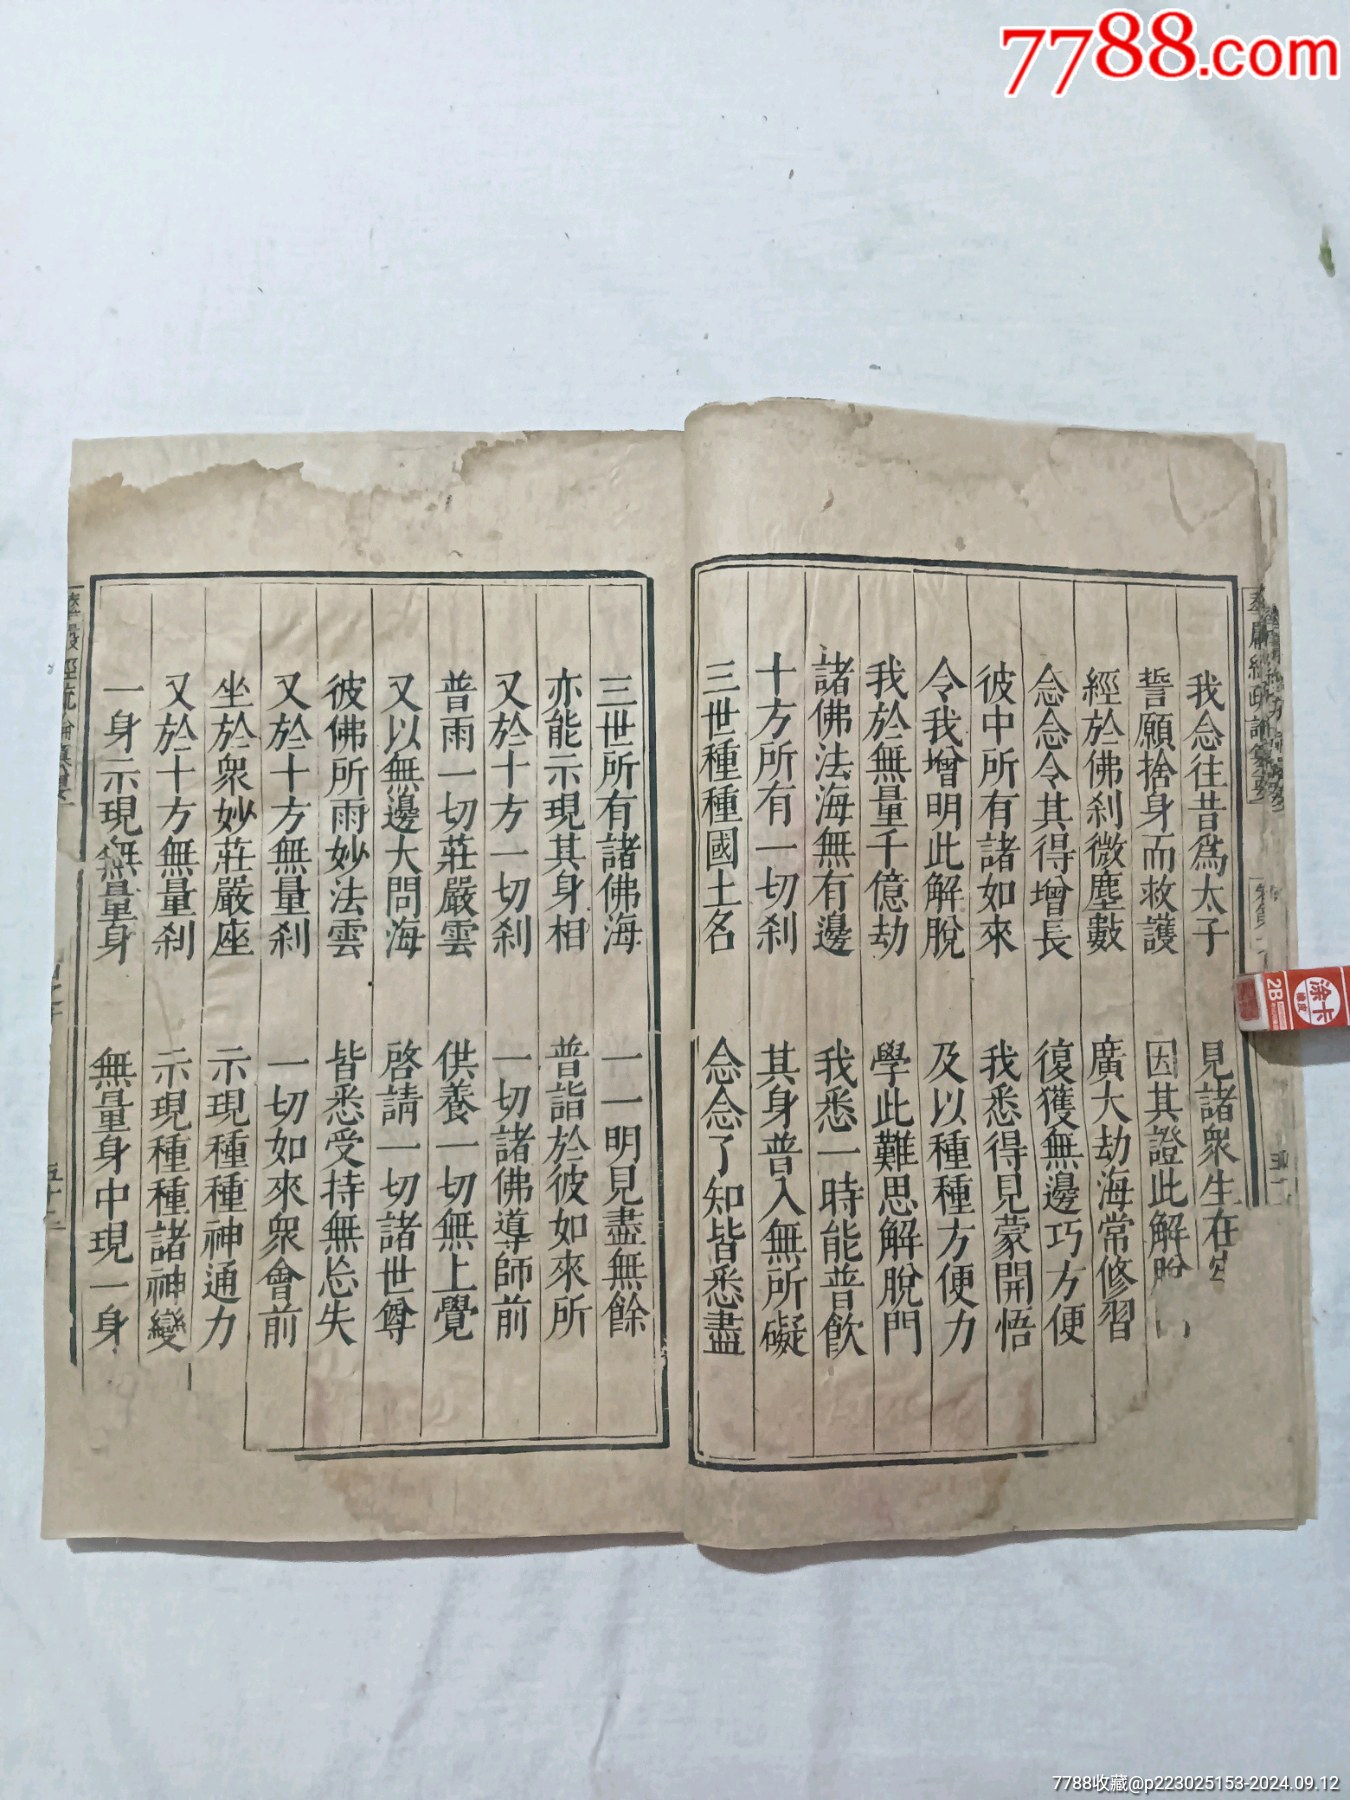 7788.com
我念往昔爲太子　見諸衆生在牢
誓願捨身而救護　因其證此解脫
經於佛刹微塵數　廣大劫海常修習
念念令其得增長　復獲無邊巧方便
彼中所有諸如來　我悉得見蒙開悟
令我增明此解脫　及以種種方便力
我於無量千億劫　學此難思解脫門
諸佛法海無有邊　我悉一時能普飲
十方所有一切刹　其身普入無所礙
三世種種國土名　念念了知皆悉盡
三世所有諸佛海　一一明見盡無餘
亦能示現其身相　普詣於彼如來所
又於十方一切刹　一切諸佛導師前
普雨一切莊嚴雲　供養一切無上覺
又以無邊大問海　啓請一切諸世尊
彼佛所雨妙法雲　皆悉受持無忘失
又於十方無量刹　一切如來衆會前
坐於衆妙莊嚴座　示現種種神通力
又於十方無量刹　示現種種諸神變
一身示現無量身　無量身中現一身
五十三
2B
涂卡
橡皮
7788收藏@p223025153-2024.09.12